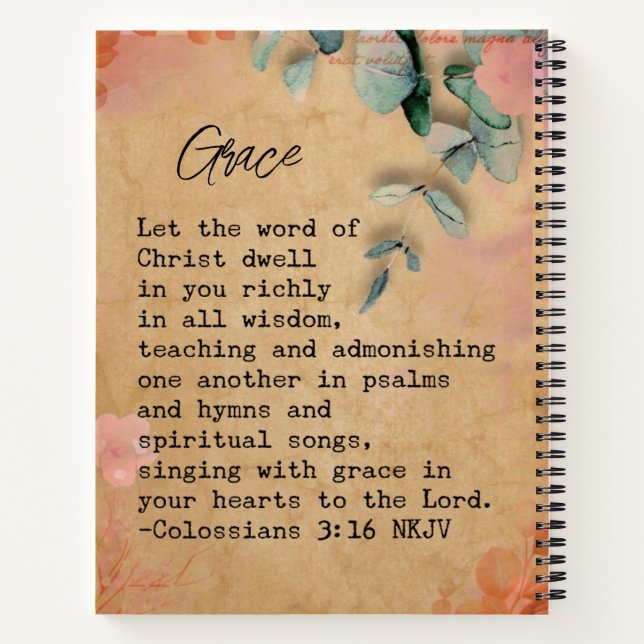 dolore magna
erat
Grace
Let the word of
Christ dwell
in you richly
in all wisdom,
teaching and admonishing
one another in psalms
and hymns and
spiritual songs,
singing with grace in
your hearts to the Lord.
-Colossians 3:16 NKJV